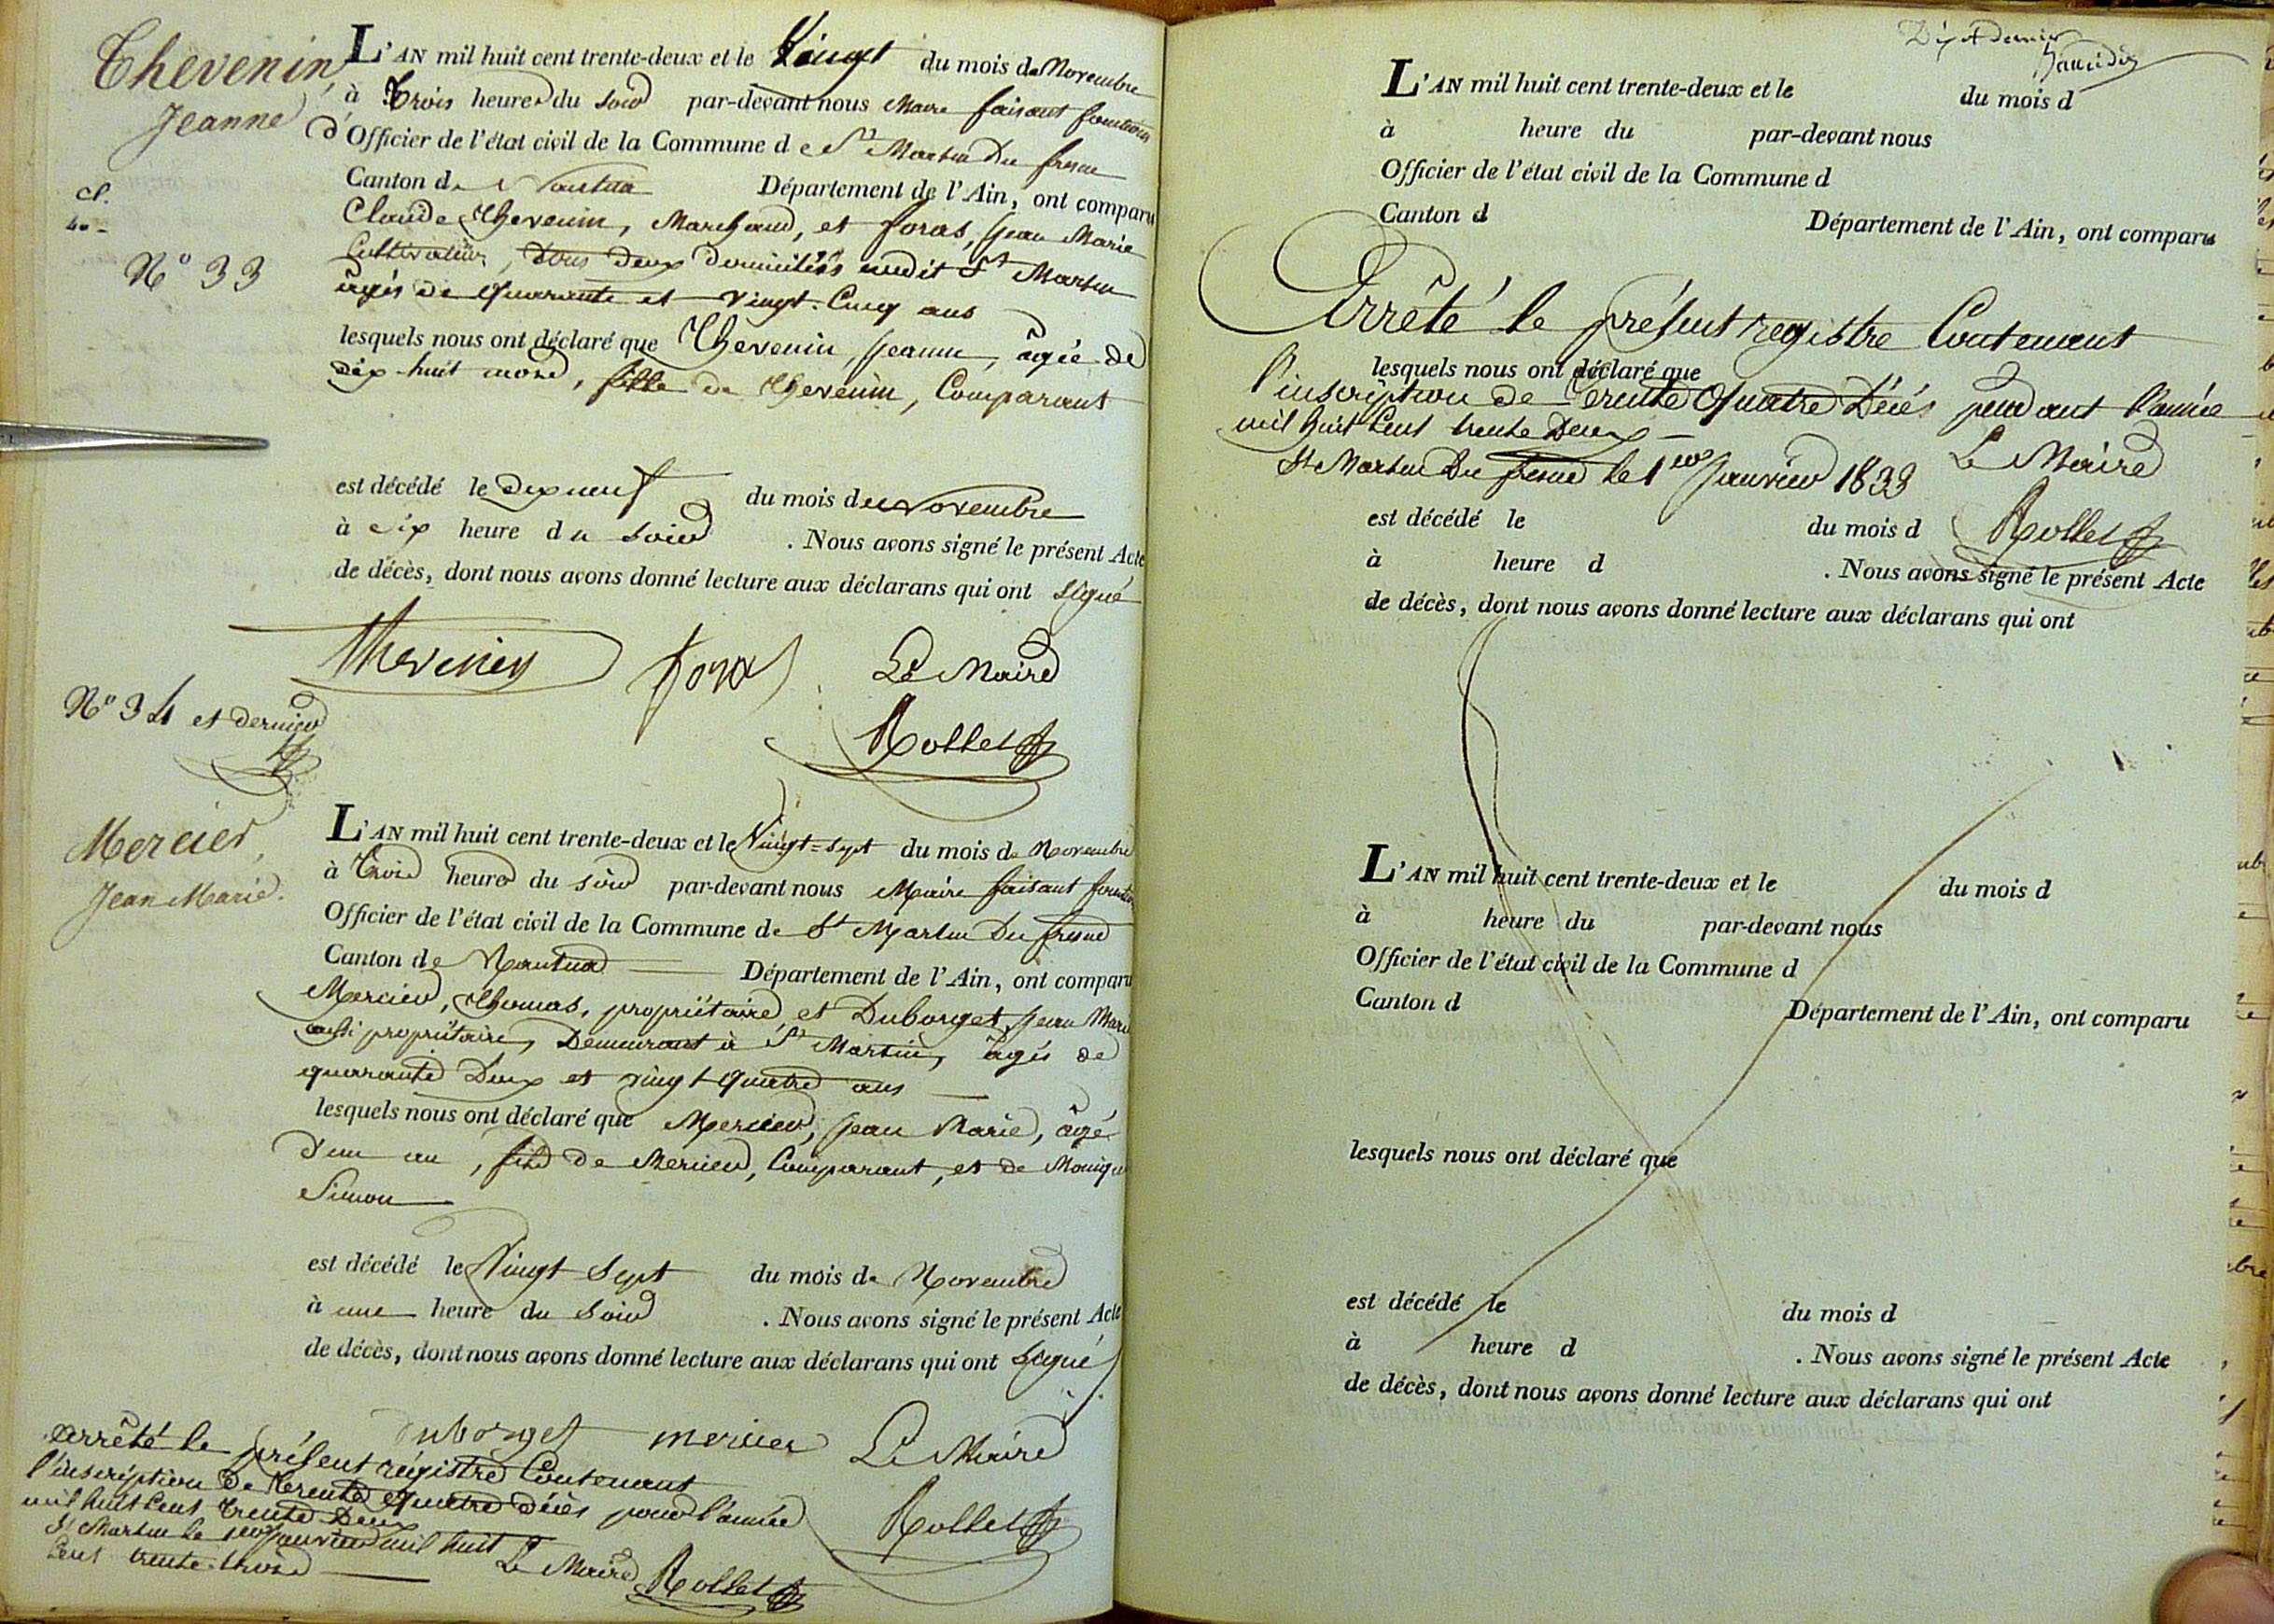 Thevenin,
Jeanne
cl.
N° 33
L'AN mil huit cent trente-deux et le Vingt du mois de Novembre
à Trois heures du soir par-devant nous Maire faisant fonctions
d'Officier de l'état civil de la Commune de St Martin Du fresne
Canton de Nantua Département de l'Ain, ont comparu
Claude Thevenin, Marchand, et foras, Jean Marie
Cultivateur, tous deux domiciliés audit St Martin
âgés de quarante et vingt-Cinq ans
lesquels nous ont déclaré que Thevenin, Jeanne, âgée de
dix-huit mois, fille de Thevenin, Comparant
est décédé le Dix neuf du mois de Novembre
à Six heure du Soir . Nous avons signé le présent Acte
de décès, dont nous avons donné lecture aux déclarans qui ont signé
Thevenin foras Le Maire
Rollet
N° 34 et dernier
Mercier,
Jean Marie.
L'AN mil huit cent trente-deux et le Vingt-sept du mois de Novembre
à Trois heures du soir par-devant nous Maire faisant fonction
Officier de l'état civil de la Commune de St Martin Du fresne
Canton de Nantua Département de l'Ain, ont comparu
Mercier, Thomas, propriétaire, et Duborget, Jean Marie
aussi propriétaire, Demeurant à St Martin, âgés de
quarante Deux et vingt-quatre ans
lesquels nous ont déclaré que Mercier, Jean Marie, âgé
d'un an, fils de Mercier, Comparant, et de Monique
Simon
est décédé le Vingt Sept du mois de Novembre
à une heure du Soir . Nous avons signé le présent Acte
de décès, dont nous avons donné lecture aux déclarans qui ont Signé
duborget mercier Le Maire
Rollet
arrêté le présent régistre Contenant
l'inscription de Trente Quatre décès pour l'année
mil huit Cent Trente Deux
St Martin le 1er Janvier mil huit
Cent trente-trois Le Maire Rollet
L'AN mil huit cent trente-deux et le du mois d
à heure du par-devant nous
Officier de l'état civil de la Commune d
Canton d Département de l'Ain, ont comparu
Arrêté le présent registre Contenant
lesquels nous ont déclaré que
l'inscription de Trente Quatre Décés pendant l'année
mil huit Cent trente Deux
St Martin Du fresne le 1er Janvier 1833 Le Maire
est décédé le du mois d Rollet
à heure d . Nous avons signé le présent Acte
de décès, dont nous avons donné lecture aux déclarans qui ont
L'AN mil huit cent trente-deux et le du mois d
à heure du par-devant nous
Officier de l'état civil de la Commune d
Canton d Département de l'Ain, ont comparu
lesquels nous ont déclaré que
est décédé le du mois d
à heure d . Nous avons signé le présent Acte
de décès, dont nous avons donné lecture aux déclarans qui ont